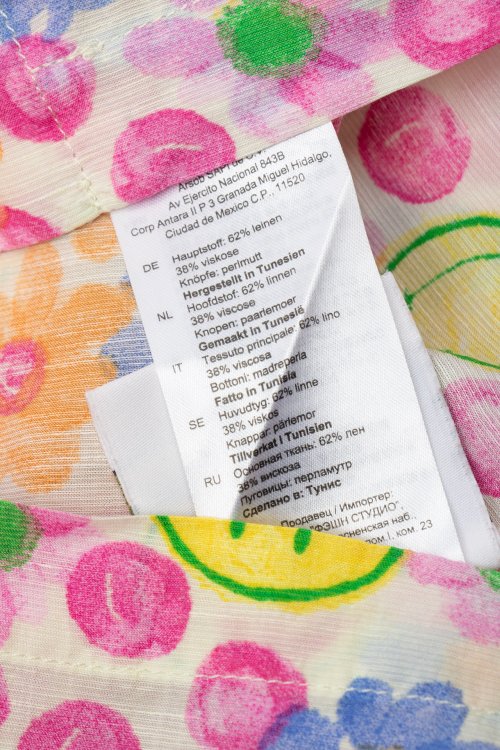 Arsob SAPI de C.V.
Av Ejercito Nacional 843B
Corp Antara II P 3 Granada Miguel Hidalgo,
Ciudad de Mexico C.P., 11520
DE Hauptstoff: 62% leinen
38% viskose
Knöpfe: perlmutt
Hergestellt in Tunesien
NL Hoofdstof: 62% linnen
38% viscose
Knopen: paarlemoer
Gemaakt in Tunesië
IT Tessuto principale: 62% lino
38% viscosa
Bottoni: madreperla
Fatto in Tunisia
SE Huvudtyg: 62% linne
38% viskos
Knappar: pärlemor
Tillverkat i Tunisien
RU Основная ткань: 62% лен
38% вискоза
Пуговицы: перламутр
Сделано в: Тунис
Продавец / Импортер:
"ФЭШН СТУДИО",
сненская наб.,
дом.I, ком. 23